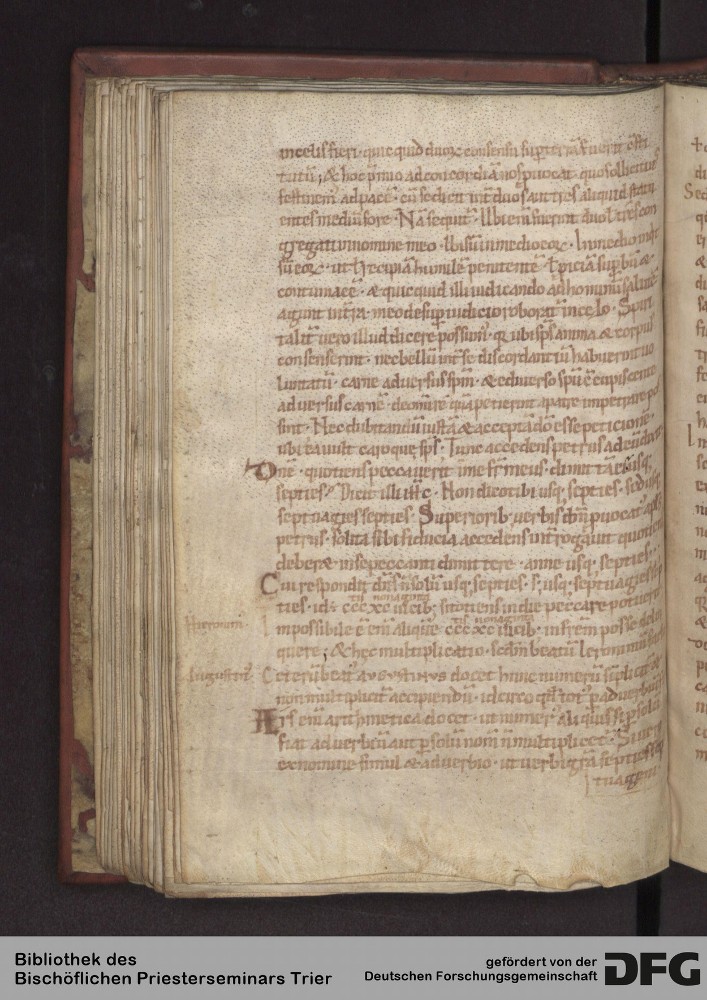 incelis fieri · quicquid duoꝝ consensu sup̄ terrā fuerit
tutū ; & hoc p̄mio ad concordiā nos puocat · quo sollicitius
festinem᷒ ad pacē · cū se dicit int̄ duos aut tres aliquid statu
entes mediū fore · Nā sequit᷑ · Ubi em̄ fuerint duo ł tres con
gregati in nomine meo · Ibi sū in medio eoꝝ · In medio inq̇t
sū eoꝝ · ut ł recipiā humilē penitentē · ł piciā sup̄bū &
contumacē · & quicquid illi iudicando ad hominū salutē
agunt in t̄ra · meo desup iudicio roborat᷑ in celo · Spiri
talit̄ uero illud dicere possum᷒ · q̇ ubi sps anima & corpus
consenserint · nec bellū int̄ se discordantiū habuerint uo
luntatū · carne aduersus sp̄m · & eduerso sp̄u c̄cupiscente
aduersus carnē · de om̄i re quā petierint a patre impetrare pos
sint · Nec dubitandū iustā & acceptā dō esse peticionē ·
ubi ea uult caro que sp̄s · Tunc accedens petrus ad eū dixit
Dn̄e · quotiens peccauerit in me fr̄ meus · dimittā ei usq;
septies · Dicit illi ih̄c · Non dico tibi usq; septies · sed usq;
septuagies septies · Superiorib; uerbis dn̄i puocat᷒ apl̄s
petrus · solita sibi fiducia accedens int̄rogauit quotiens
deber& in se peccanti dimittere · anne usq; septies ·
Cui respondit dn̄s n̄ solū usq; septies · s; usq; septuagies sep
ties · id; ccc xc uicib; si totiens in die peccare potuerit
Hieronim᷒ Impossibile ē em̄ aliquē ccc xc uicib; in fr̄em posse delin
quere ; & hęc multiplicatio · scdm̄ beatū Ieronimū
Augustin᷒ Ceterū beat᷒ AUGUSTINUS docet hunc numerū simplicit̄ &
non multiplicit̄ accipiendū · idcirco
Ars em̄ arithmetica docet · ut numer᷒ aliquis si p solū
fiat aduerbiū aut p solū nom̄ n̄ multiplicet᷑ · Si uero
ex nomine simul & aduerbio · ut uerbi gr̄a septies
tuaginta
Bibliothek des
Bischöflichen Priesterseminars Trier
gefördert von der
Deutschen Forschungsgemeinschaft
DFG